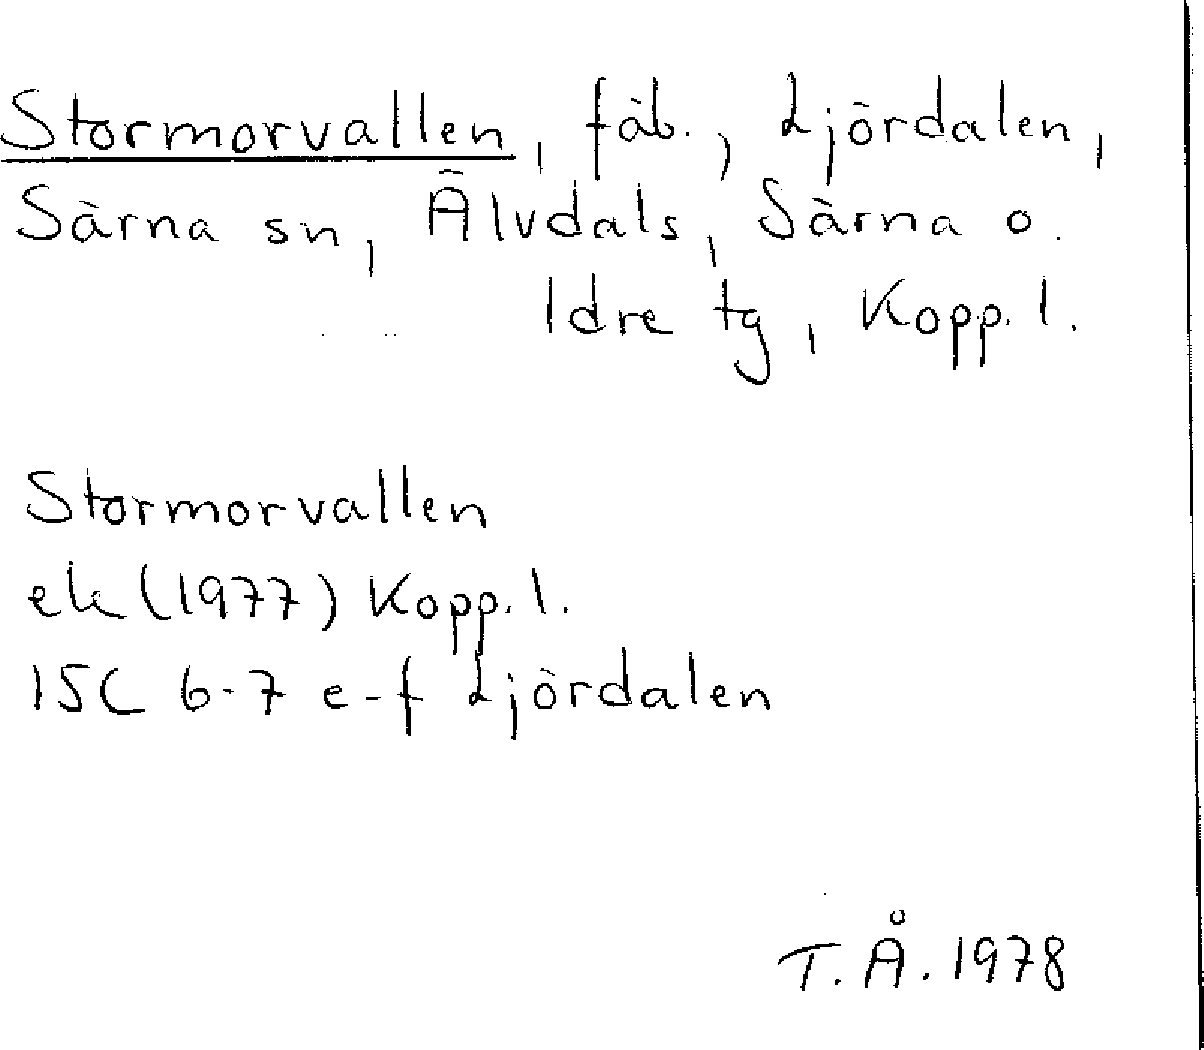 Stormorvallen, fäb., Ljördalen,
Särna sn, Älvdals, Särna o.
Idre tg, Kopp. l.
Stormorvallen
ek (1977) Kopp. l.
15C 6-7 e-f Ljördalen
T. Å. 1978